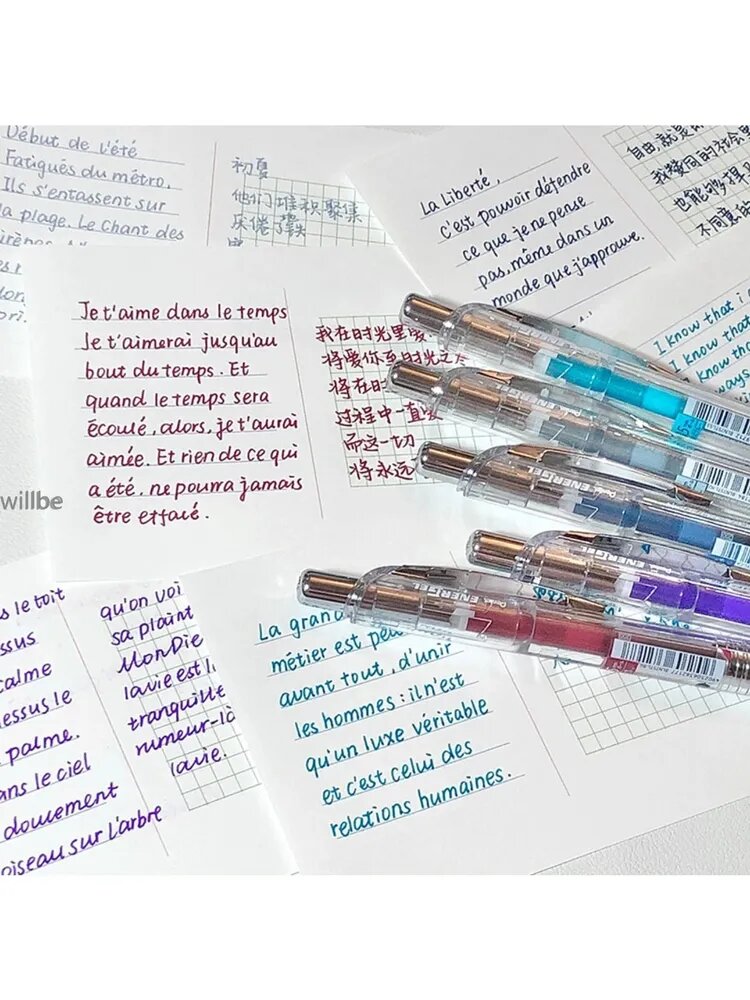 Début de l'été
Fatigués du métro,
Ils s'entassent sur
la plage. Le Chant des
初夏
他们堆积聚集
厌倦了地铁
La Liberté,
c'est pouvoir défendre
ce que je ne pense
pas, même dans un
monde que j'approuve.
自由,就是
我赞同的社会里
也能够捍
不同意的
I know that i
I know that
I know tha
ways
Je t'aime dans le temps
Je t'aimerai jusqu'au
bout du temps. Et
quand le temps sera
écoulé, alors, je t'aurai
aimée. Et rien de ce qui
a été, ne pourra jamais
être effacé.
我在时光里爱
将爱你至时光之
将在时
过程中一直
而这一切
将永远
willbe
s le toit
ssus
calme
dessus le
palme.
ans le ciel
doucement
oiseau sur l'arbre
qu'on voi
sa plaint
Mon Die
la vie est l
tranquille
rumeur-là
la vie.
La gran
métier est peu
avant tout, d'unir
les hommes : il n'est
qu'un luxe véritable
et c'est celui des
relations humaines.
Pentel ENERGEL
Pentel ENERGEL
Pentel ENERGEL